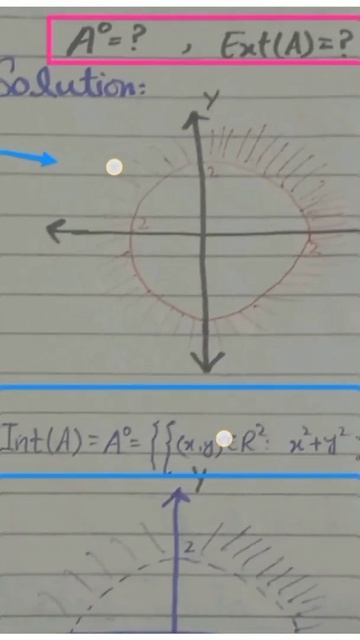 A° = ? , Ext(A) = ?
Solution:
Y
2
2
2
Int(A) = A° = {{(x,y) ∈ R²: x²+y²
Y
2